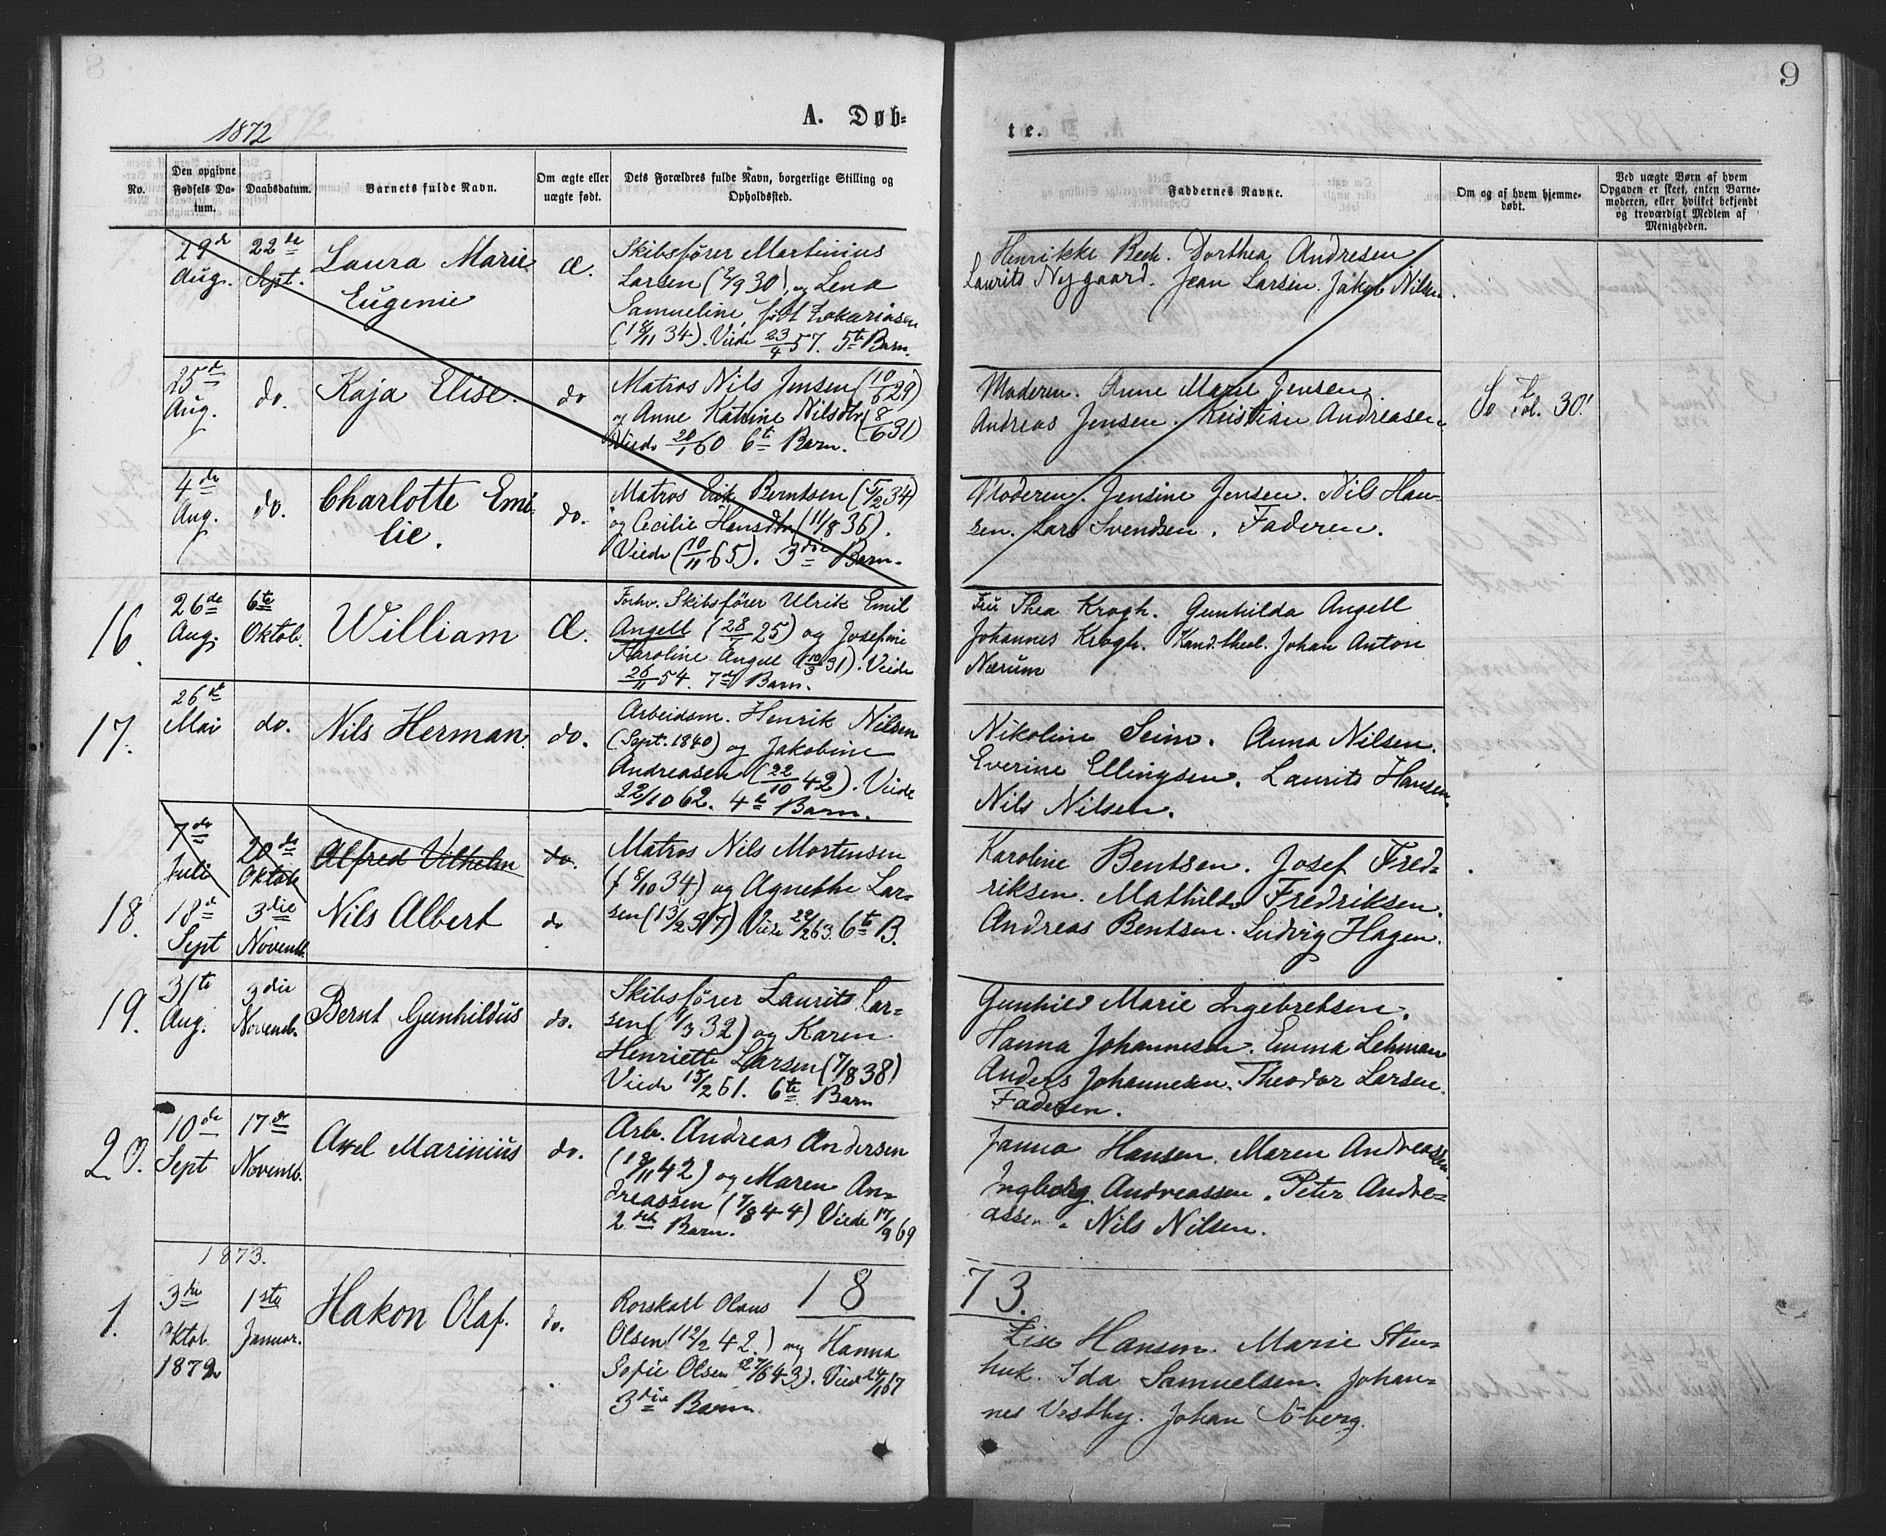 9
1872
A. Døb-
te.
No.
Den opgivne Fødsels Da-tum.
Daabsdatum.
Barnets fulde Navn.
Om ægte eller uægte født.
Dets Forældres fulde Navn, borgerlige Stilling og Opholdssted.
Faddernes Navne.
Om og af hvem hjemme-døbt.
Ved uægte Børn af hvem Opgaven er skeet, enten Barne-moderen, eller hvilket bekjendt og troværdigt Medlem af Menigheden.
29de Aug.
22de Sept.
Laura Marie
Eugenie
Æ.
Skibsfører Martinius
Larsen (2/9 30), og Lena
Samueline, født Zakariasen
(18/11 34). Viede 23/4 57. 5te Barn.
Henrikke Bech. Dorthea Andresen
Laurits Nygaard. Jean Larsen. Jakob Nilsen.
25de Aug.
do.
Kaja Elise.
do
Matros Nils Jensen (10/6 29)
og Anne Katrine Nilsdtr (8/6 31)
Viede 20/1 60. 6te Barn.
Moderen. Anne Marie Jensen.
Andreas Jensen. Kristian Andreasen.
4de Aug.
do.
Charlotte Emi-
lie.
do.
Matros Erik Berntsen (5/2 34)
og Cecilie Hansdtr (11/8 36).
Viede (10/11 65). 3die Barn.
Moderen. Jensine Jensen. Nils Han-
sen. Lars Svendsen. Faderen.
16.
26de Aug.
6te Oktob.
William
Æ.
Forhv. Skibsfører Ulrik Emil
Angell (28/ 25) og Josefine
Karoline Angell (10/3 31). Viede
26/11 54. 7de Barn.
Fru Thea Krogh. Gunhilda Angell
Johannes Krogh. Kand. theol. Johan Anton
Nærum
17.
26de Mai
do.
Nils Herman.
do.
Arbeidsm. Henrik Nilsen
(Sept. 1840) og Jakobine
Andreasen (22/10 42). Viede
22/10 62. 4de Barn.
Nikoline Seim. Anna Nilsen.
Everine Ellingsen. Laurits Hansen.
Nils Nilsen.
7de Juli
20de Oktob
Alfred Vilhelm
do.
18.
18de Sept
3die Novemb.
Nils Albert
do
Matros Nils Mortensen
(f 8/10 34) og Agnethe Lar-
sen (13/2 37) Viede 22/2 63. 6te B.
Karoline Bentsen. Josef Fred-
riksen. Mathilde Fredriksen.
Andreas Bentsen. Ludvig Hagen.
19.
31te Aug.
3die Novemb.
Bernt Gunhildus
do.
Skibsfører Laurits Lar-
sen (1/3 32) og Karen
Henriette Larsen (7/8 38)
Viede 15/2 61. 6te Barn
Gunhild Marie Ingebretsen.
Hanna Johannesen. Emma Lehman
Anders Johannesen. Theodor Larsen.
Faderen.
20.
10de Sept
17de Novemb.
Axel Marinius
do.
Arb. Andreas Andersen
(18/11 42) og Maren An-
dreassen (7/8 44) Viede 17/9 69
2det Barn.
Janna Hansen. Maren Andreassen
Ingborg Andreassen. Peter Andre-
assen. Nils Nilsen.
1873.
18
73.
1.
3die Oktob. 1872
1ste Januar.
Hakon Olaf.
do.
Rorskall Olaus
Olsen (12/2 42.) og Hanna
Sofie Olsen (27/6 43). Viede 24/1 67
3die Barn.
Lise Hansen. Marie Sten-
huk. Ida Samuelsen. Johan-
nes Vestby. Johan Söberg.